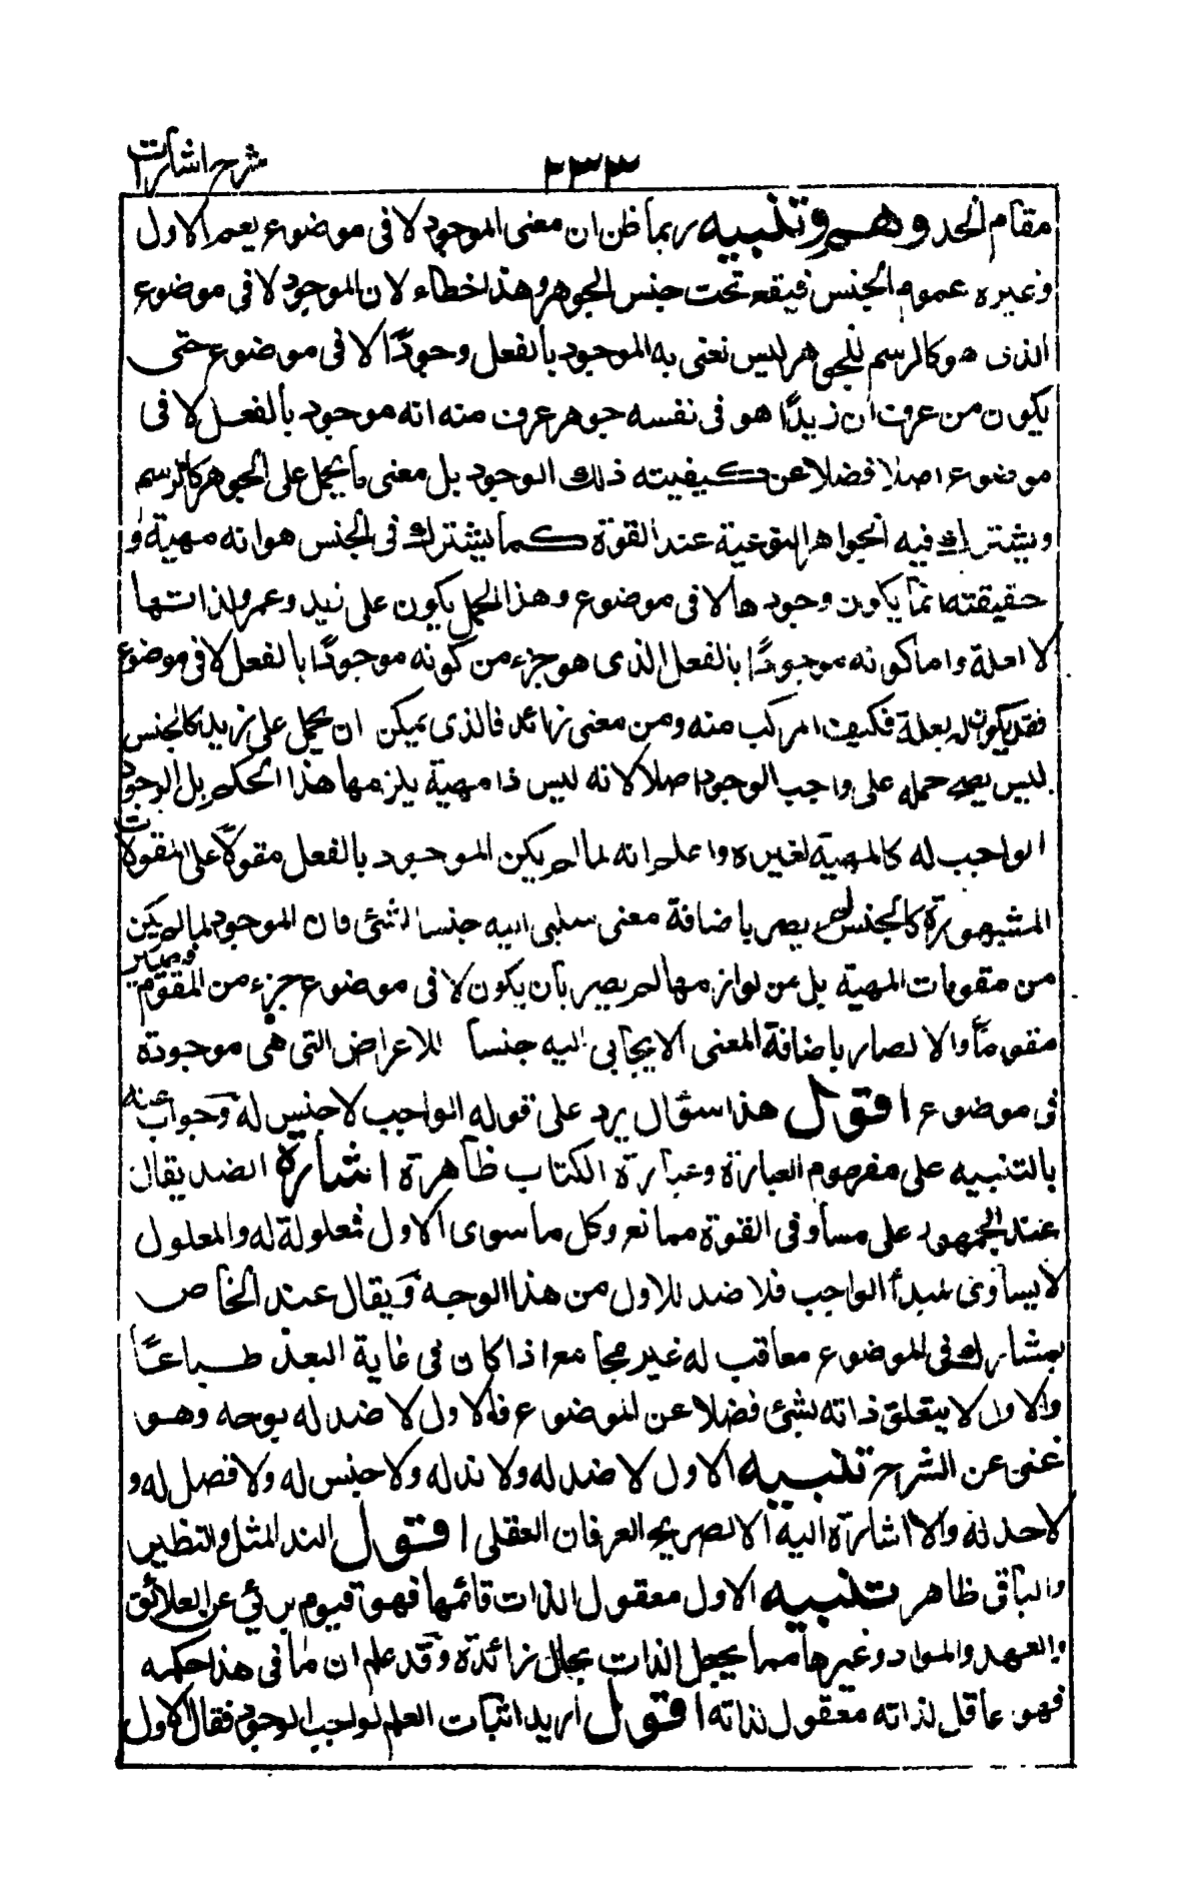 شرح اشارات
٢٣٣
مقام الحد وهم وتنبيه ربما ظن ان معنى الموجود لا فى موضوع يعم الاول
وغيره عموم الجنس فيقع تحت جنس الجوهر وهذا خطاء لان الموجود لا فى موضوع
الذى هو كالرسم للجوهر ليس نعنى به الموجود بالفعل وجودًا لا فى موضوع حتى
يكون من عرف ان زيدًا هو فى نفسه جوهر عرف منه انه موجود بالفعل لا فى
موضوع اصلا فضلا عن كيفيته ذلك الوجود بل معنى ما يحمل على الجوهر كالرسم
ويشترك فيه الجواهر النوعية عند القوة كما يشترك فى الجنس هو انه مهية و
حقيقته انما يكون وجودها لا فى موضوع وهذا الحمل يكون على زيد وعمرو لذاتها
لا لعلة واما كونه موجودًا بالفعل الذى هو جزء من كونه موجودًا بالفعل لا فى موضوع
فقد يكون له بعلة فكيف المركب منه ومن معنى زائد فالذى يمكن ان يحمل على زيد كالجنس
ليس يصح حمله على واجب الوجود اصلا لانه ليس ذا مهية يلزمها هذا الحكم بل الوجود
الواجب له كالمهية لغيره واعلم انه لما لم يكن الموجود بالفعل مقولًا على المقولات
المشهورة كالجنس لم يصر باضافة معنى سلبى اليه جنسا لشئ فان الموجود لما لم يكن
من مقومات المهية بل من لوازمها لم يصر بأن يكون لا فى موضوع جزء من المقوم فيصير
مقومًا والا لصار باضافة المعنى الايجابى اليه جنسا للاعراض التى هى موجودة
فى موضوع اقول هذا سؤال يرد على قوله الواجب لا جنس له وجواب عنه
بالتنبيه على مفهوم العبارة وعبارة الكتاب ظاهرة اشارة الضد يقال
عند الجمهور على مساو فى القوة ممانع وكل ما سوى الاول فمعلولة له والمعلول
لا يساوى مبدأ الواجب فلا ضد للاول من هذا الوجه ويقال عند الخاص
لمشارك فى الموضوع معاقب له غير مجامع اذا كان فى غاية البعد طباعًا
والاول لا يتعلق ذاته بشئ فضلا عن الموضوع فالاول لا ضد له بوجه وهو
غنى عن الشرح تنبيه الاول لا ضد له ولا ند له ولا جنس له ولا فصل له و
لا حد له ولا اشارة اليه الا لصريح العرفان العقلى اقول الند المثل والنظير
والباقى ظاهر تنبيه الاول معقول الذات قائمها فهو قيوم برئي عن العلائق
والعهد والمواد وغيرها مما يجعل الذات بحال زائدة وقد علم ان ما فى هذا حكمه
فهو عاقل لذاته معقول لذاته اقول اريد اثبات العلم لواجب الوجود فقال الاول